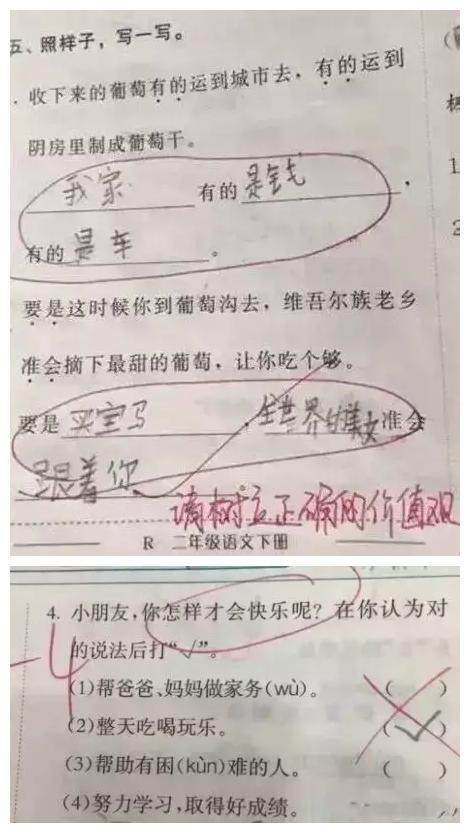 五、照样子，写一写。
收下来的葡萄有的运到城市去，有的运到
阴房里制成葡萄干。
我家有的是钱，
有的是车。
要是这时候你到葡萄沟去，维吾尔族老乡
准会摘下最甜的葡萄，让你吃个够。
要是买宝马，全世界的美女准会
跟着你
请树立正确的价值观
R 二年级语文下册
4. 小朋友，你怎样才会快乐呢？在你认为对
的说法后打“√”。
-4
(1)帮爸爸、妈妈做家务(wù)。 ( )
(2)整天吃喝玩乐。 (√)
(3)帮助有困(kùn)难的人。 ( )
(4)努力学习，取得好成绩。